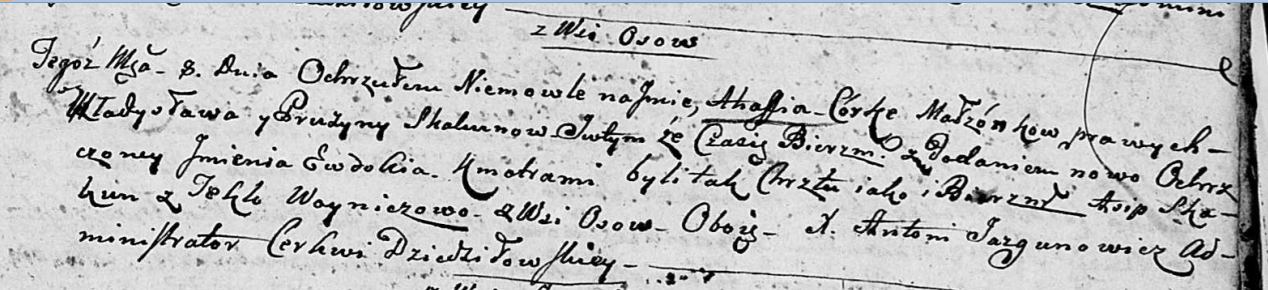 z Wsi Osow
Tegoż Mȩa. 8. Dnia Ochrzułem Niemowle na Jmie, Ahafia Córkę Małżonkow prawych-
Władysława y Pruzyny Skakunow. Jwtym że Czasie Bierzm. z Dodaniem nowo Ochrz
czoney Jmienia Ewdokia. Kmotrami byli tak Chrztu iako i Bierzm Asip Ska-
kun z Teklo Woyniczowo. z Wsi Osow Oboie- X. Antoni Jazgunowicz Ad-
ministrator Cerkwi Dziedziłowskiey